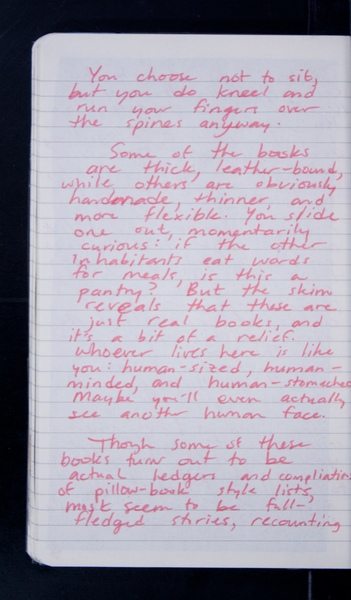 You choose not to sit,
but you do kneel and
run your fingers over
the spines anyway.
Some of the books
are thick, leather-bound,
while others are obviously
handmade, thinner, and
more flexible. You slide
one out, momentarily
curious: if the other
inhabitants eat words
for meals, is this a
pantry? But the skim
reveals that these are
just real books, and
it's a bit of a relief.
Whoever lives here is like
you: human-sized, human-
minded, and human-stomached
Maybe you'll even actually
see another human face.
Though some of these
books turn out to be
actual ledgers and compliations
of pillow-book style lists,
most seem to be full-
fledged stories, recounting